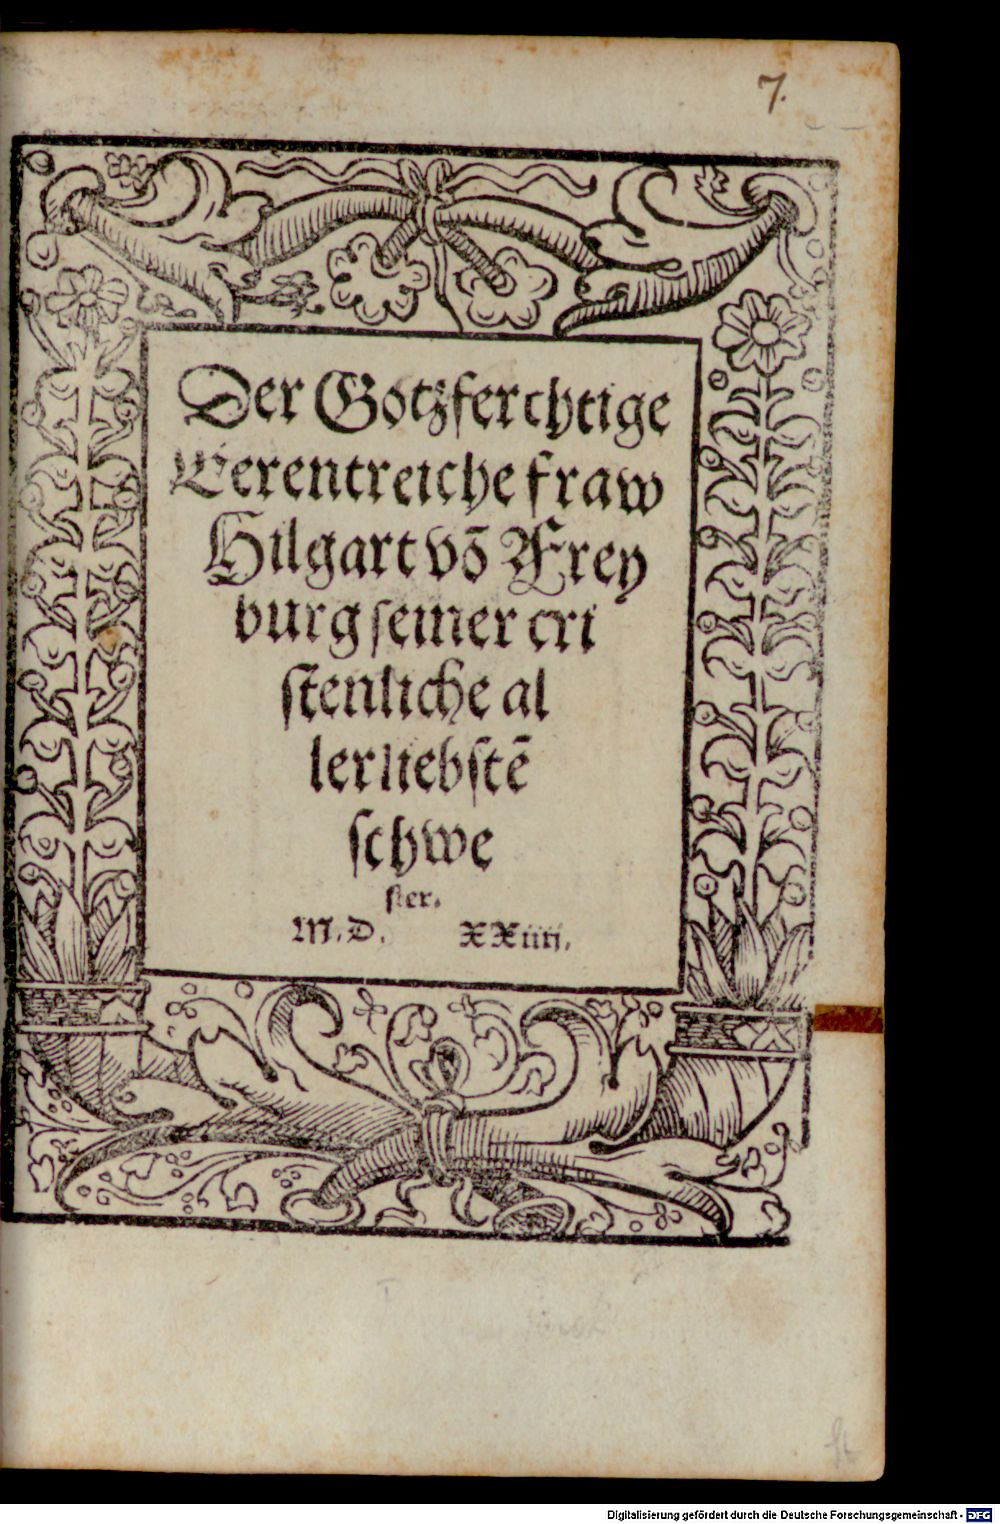 7.
Der Gotzferchtige
Eerentreiche fraw
Hilgart võ Frey
burg seiner cri
stenliche al
lerliebstē
schwe
ster.
M.D. XXiiij.
Digitalisierung gefördert durch die Deutsche Forschungsgemeinschaft - DFG